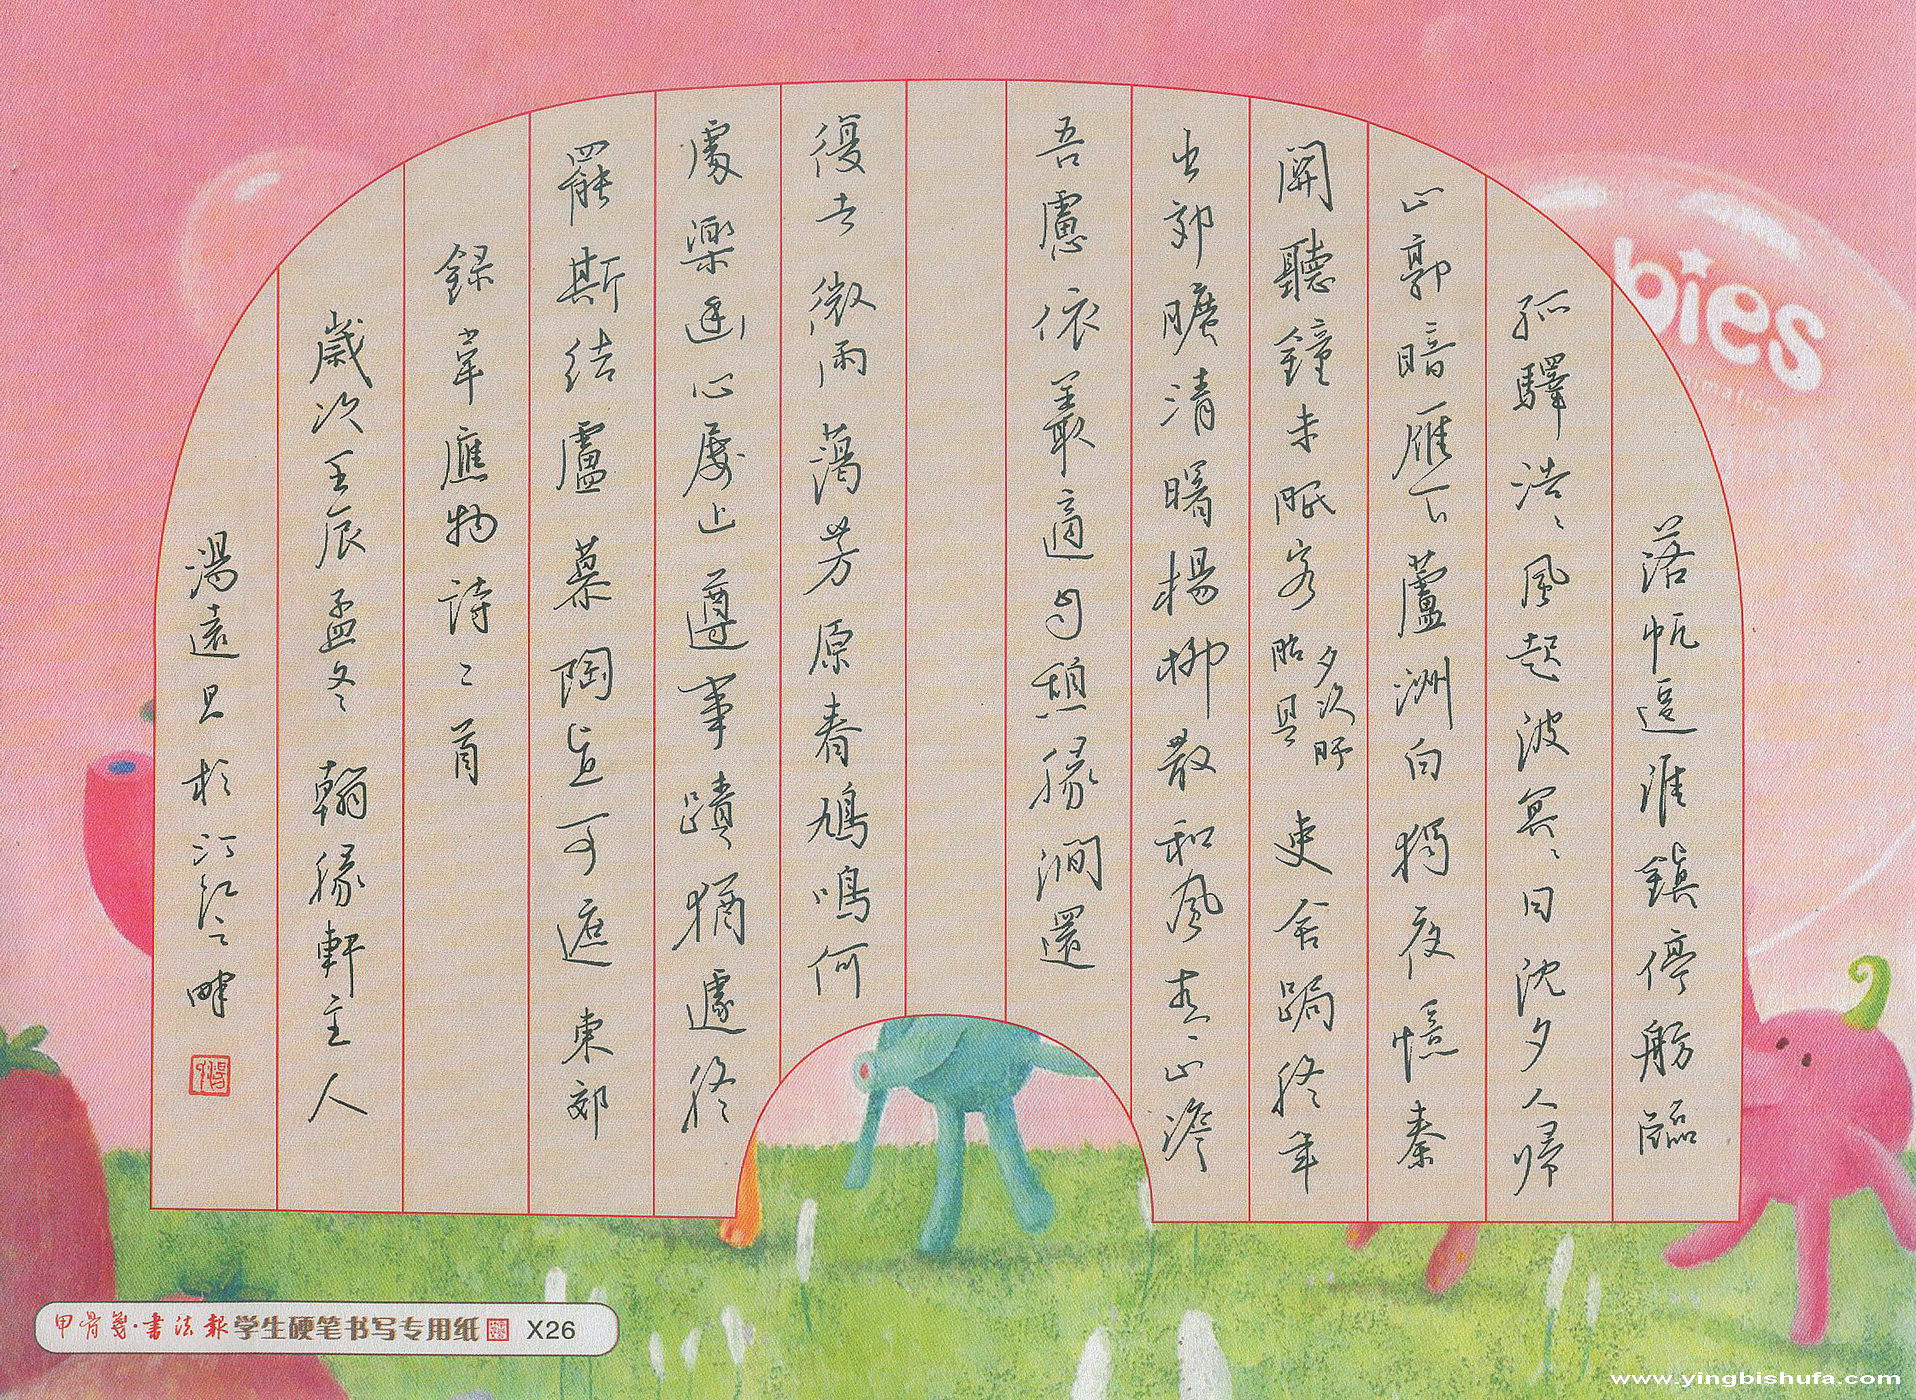 落帆逗淮鎮停舫臨
孤驛浩々風起波冥々日沈夕人歸
山郭暗雁下蘆洲白獨夜憶秦
關聽鐘未眠客 夕次盱眙縣 吏舍跼終年
出郊曠清曙楊柳散和風青山澹
吾慮依叢適自憩緣澗還
復去微雨藹芳原春鳩鳴何
處樂幽心屢止遵事蹟猶遽終
罷斯結廬慕陶直可遮 東郊
錄韋應物詩二首
歲次壬辰孟冬 翰緣軒主人
湯遠之於汀江之畔
bies
甲骨笺·書法報学生硬笔书写专用纸 X26
www.yingbishufa.com